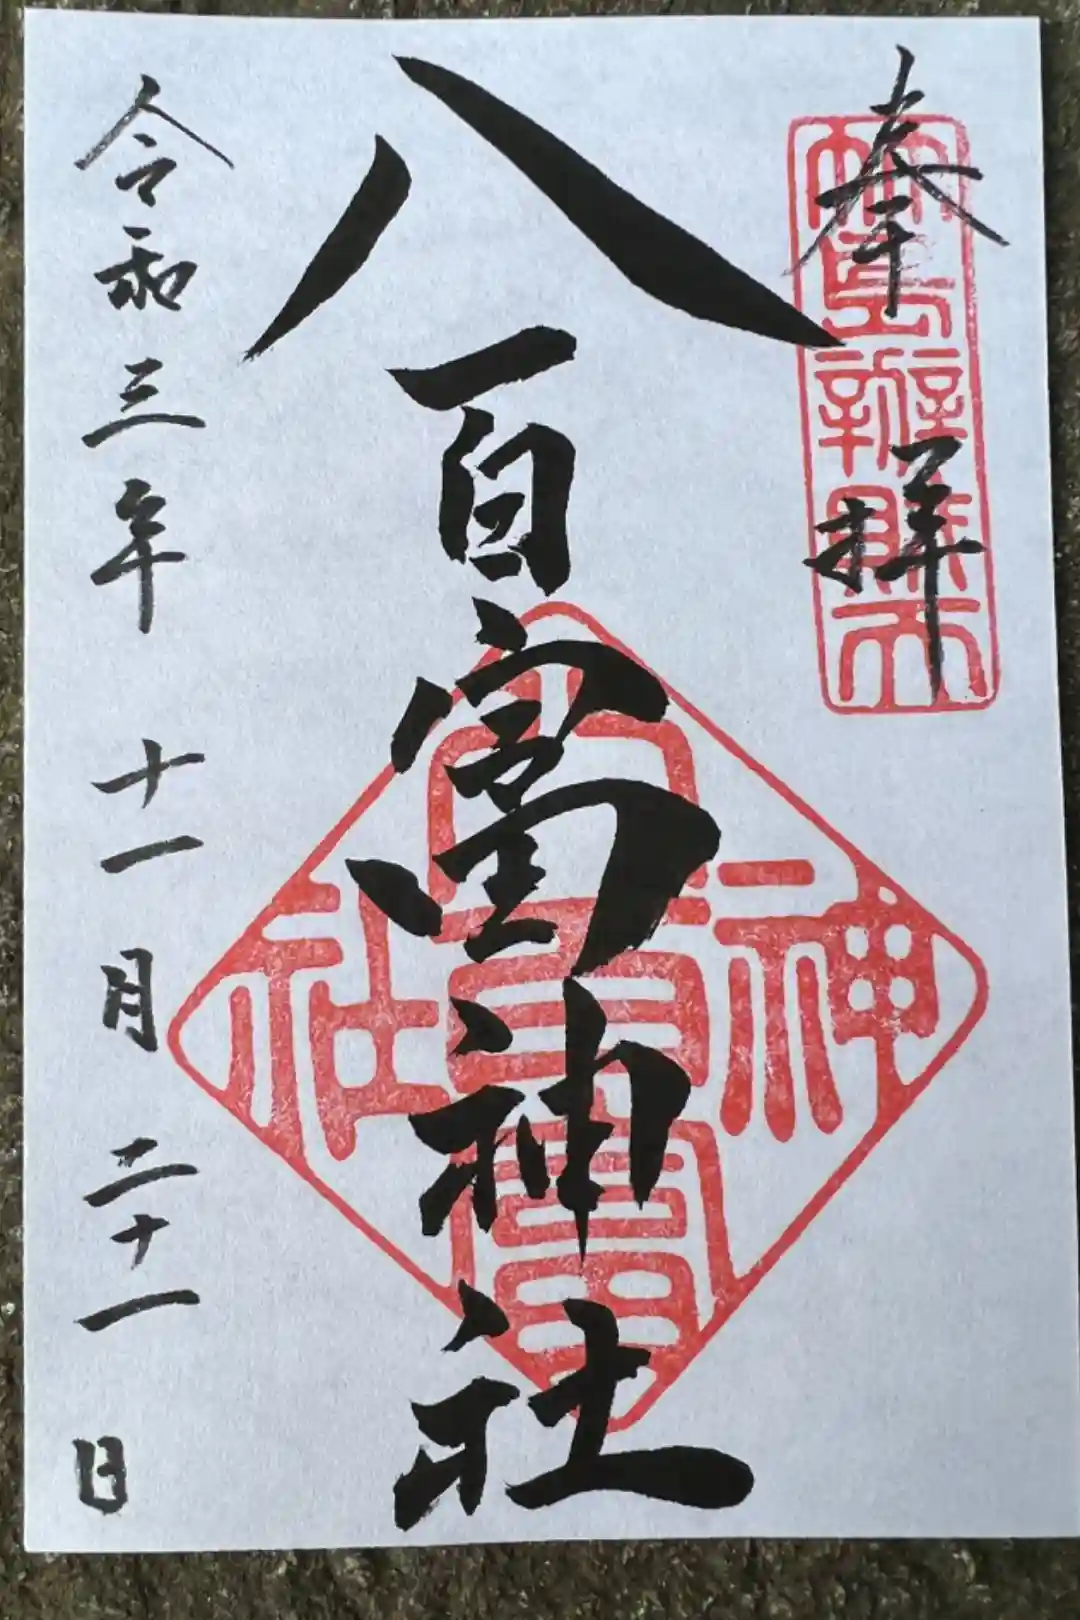 奉拝
竹島辨財天
八百富神社
八百富神社
令和三年十一月二十一日